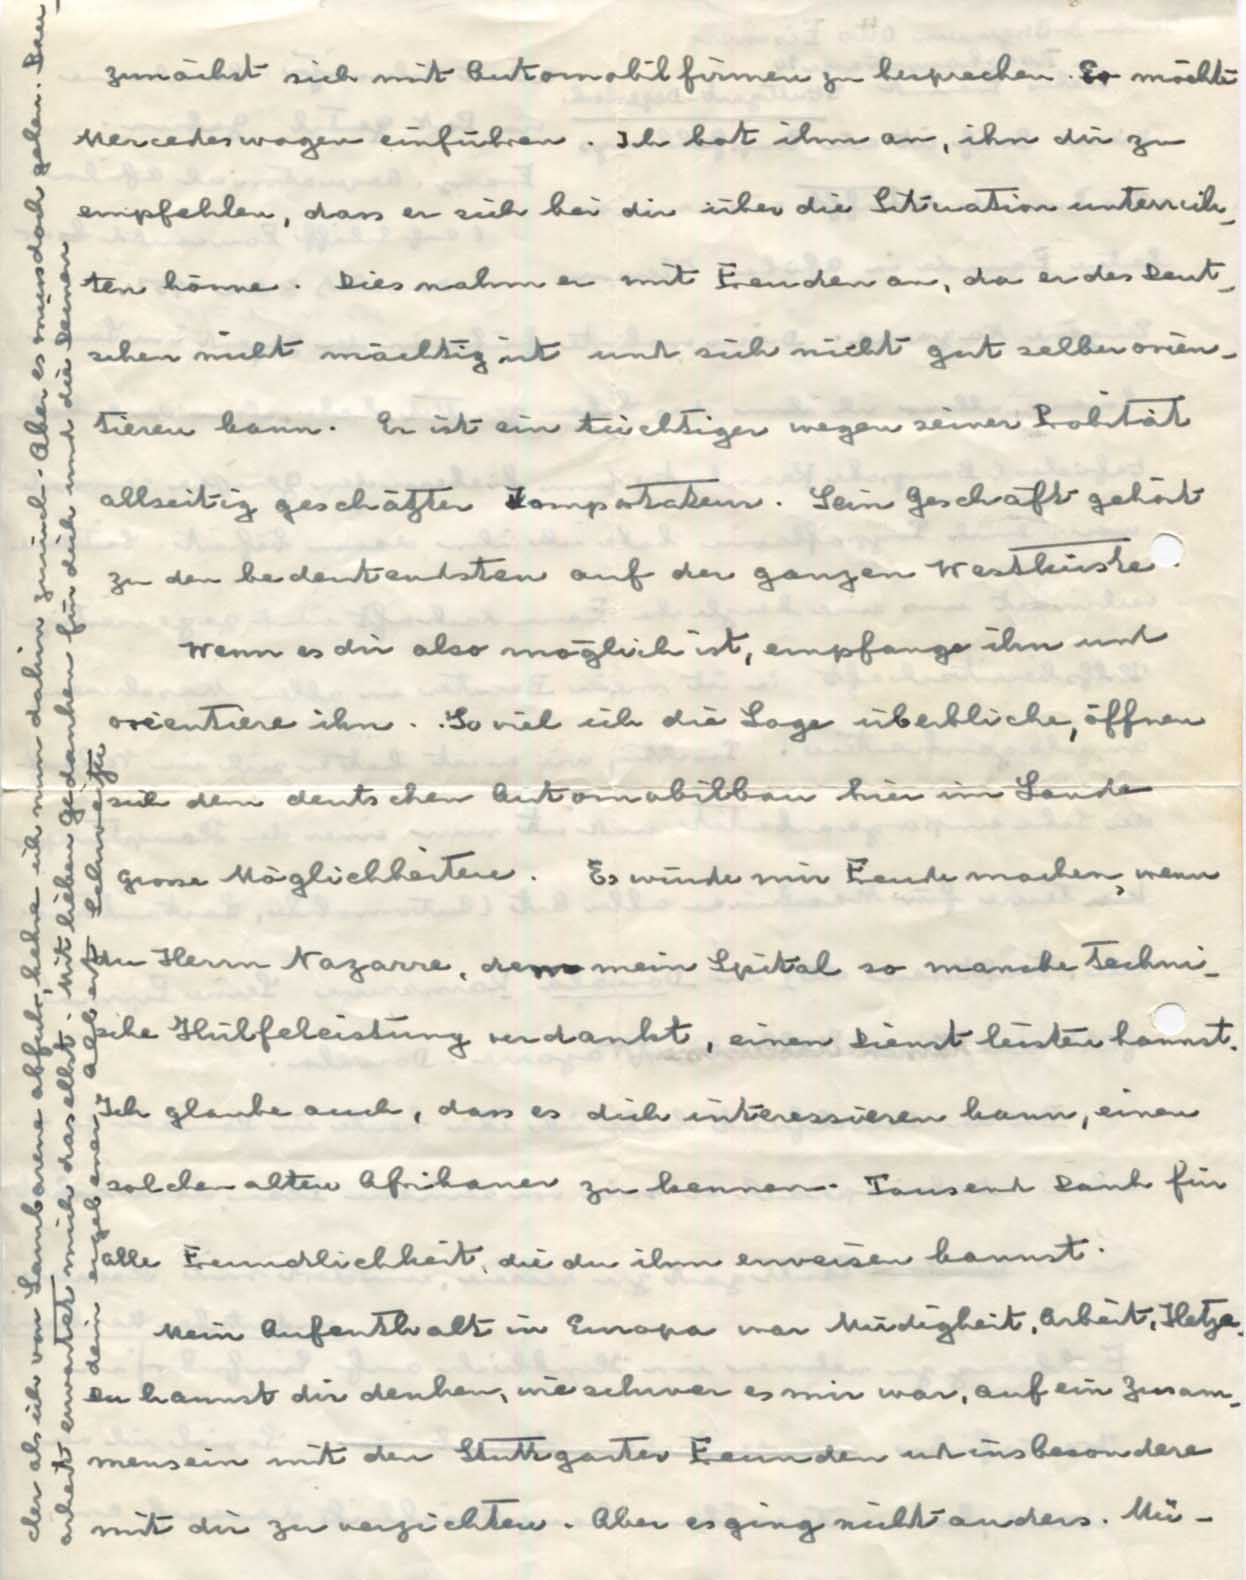 zunächst sich mit Automobilfirmen zu besprechen. Er möchte
Mercedeswagen einführen. Ich bot ihm an, ihn dir zu
empfehlen, dass er sich bei dir über die Situation unterrich-
ten könne. Dies nahm er mit Freuden an, da er des Deut-
schen nicht mächtig ist und sich nicht gut selber orien-
tieren kann. Er ist ein tüchtiger wegen seiner Probität
allseitig geschätzter Importateur. Sein Geschäft gehört
zu den bedeutendsten auf der ganzen Westküste.
Wenn es dir also möglich ist, empfange ihn und
orientiere ihn. So viel ich die Lage überblicke, öffnen
sich dem deutschen Automobilbau hier im Lande
grosse Möglichkeiten. Es würde mir Freude machen, wenn
du Herrn Nazarre, dem mein Spital so manche techni-
sche Hülfeleistung verdankt, einen Dienst leisten kannst.
Ich glaube auch, dass es dich interessieren kann, einen
solchen alten Afrikaner zu kennen. Tausend Dank für
alle Freundlichkeit, die du ihm erweisen kannst.
Mein Aufenthalt in Europa war Müdigkeit, Arbeit, Hetze.
Du kannst dir denken, wie schwer es mir war, auf ein Zusam-
mensein mit den Stuttgarter Freunden und insbesondere
mit dir zu verzichten. Aber es ging nicht anders. Mü-
der als ich von Lambarene abfuhr, kehre ich nun dahin zurück. Aber es muss doch gehen. Denn
Arbeit erwartet mich daselbst. Mit lieben Gedanken für dich und die Deinen
dein ergebener Albert Schweitzer